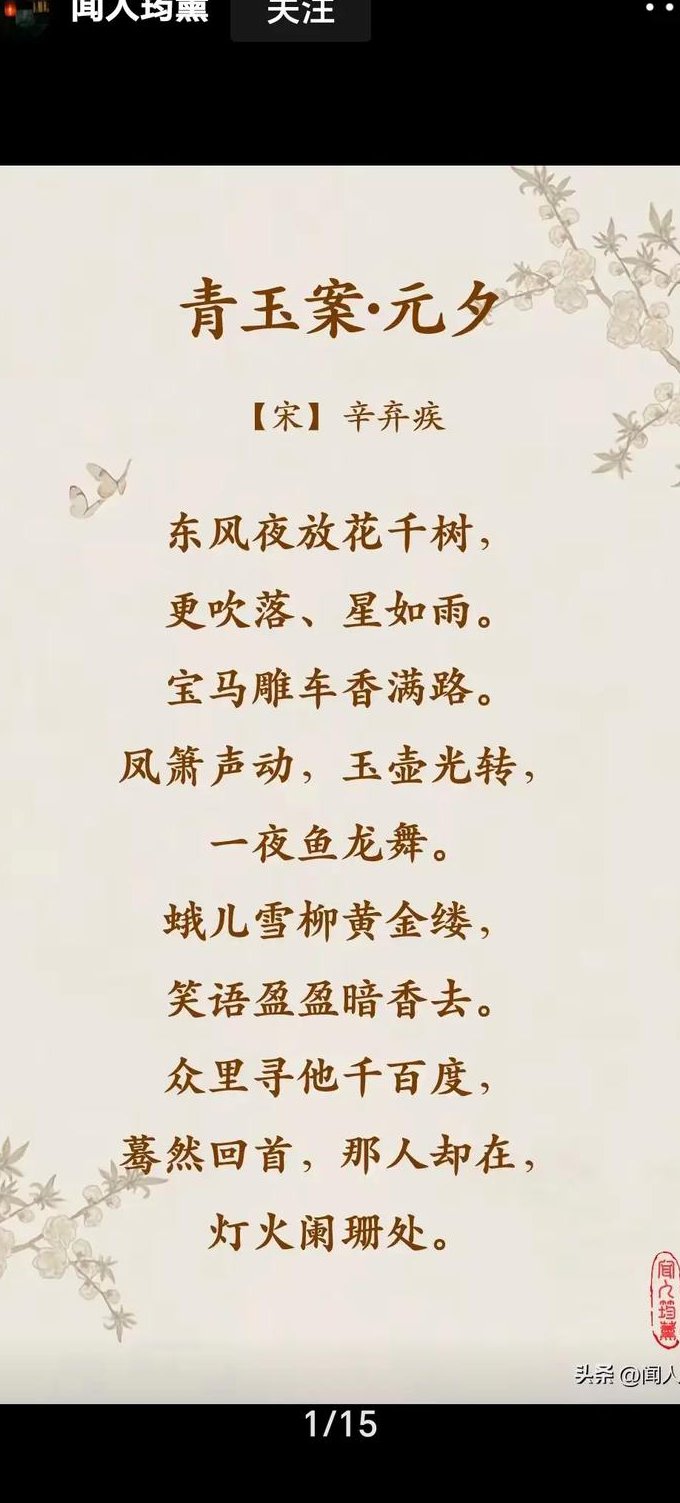 闻人筠薰
关注
青玉案·元夕
【宋】辛弃疾
东风夜放花千树，
更吹落、星如雨。
宝马雕车香满路。
凤箫声动，玉壶光转，
一夜鱼龙舞。
蛾儿雪柳黄金缕，
笑语盈盈暗香去。
众里寻他千百度，
蓦然回首，那人却在，
灯火阑珊处。
闻人筠薰
头条 @闻人
1/15